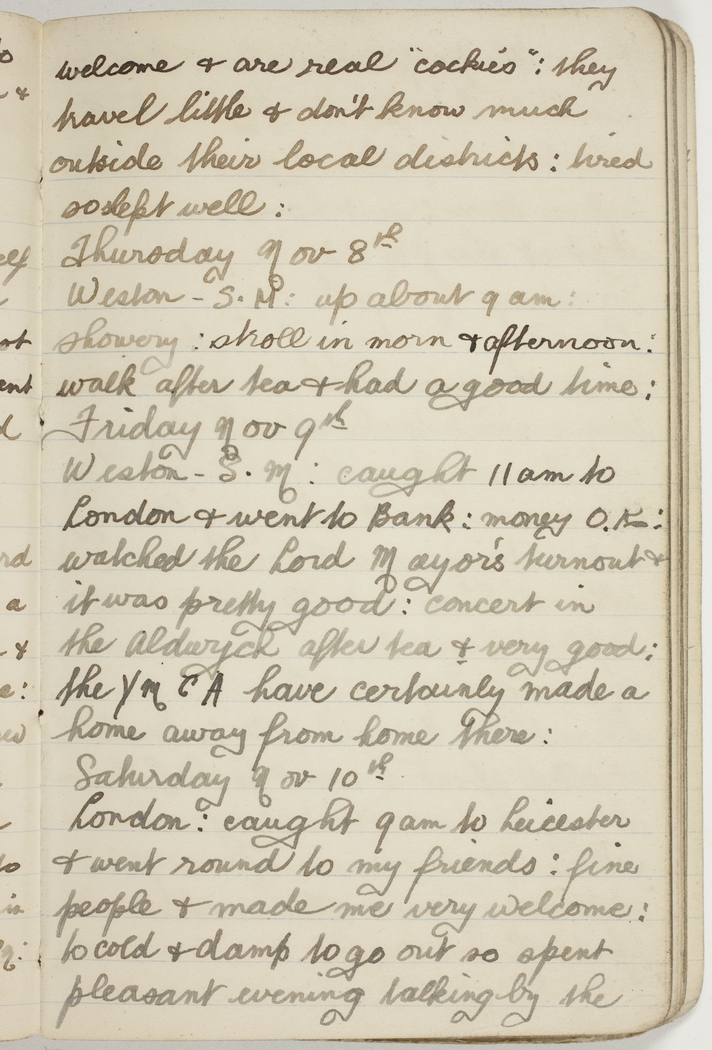 welcome & are real "cockies": they
travel little & don't know much
outside their local districts: tired
so slept well:
Thursday Nov 8th
Weston-S.M: up about 9 am:
showery: stroll in morn & afternoon:
walk after tea & had a good time:
Friday Nov 9th
Weston-S.M: caught 11 am to
London & went to Bank: money O.K.:
watched the Lord Mayor's turnout &
it was pretty good: concert in
the Aldwych after tea & very good:
the YMCA have certainly made a
home away from home there:
Saturday Nov 10th
London: caught 9 am to Leicester
& went round to my friends: fine
people & made me very welcome:
to cold & damp to go out so spent
pleasant evening talking by the